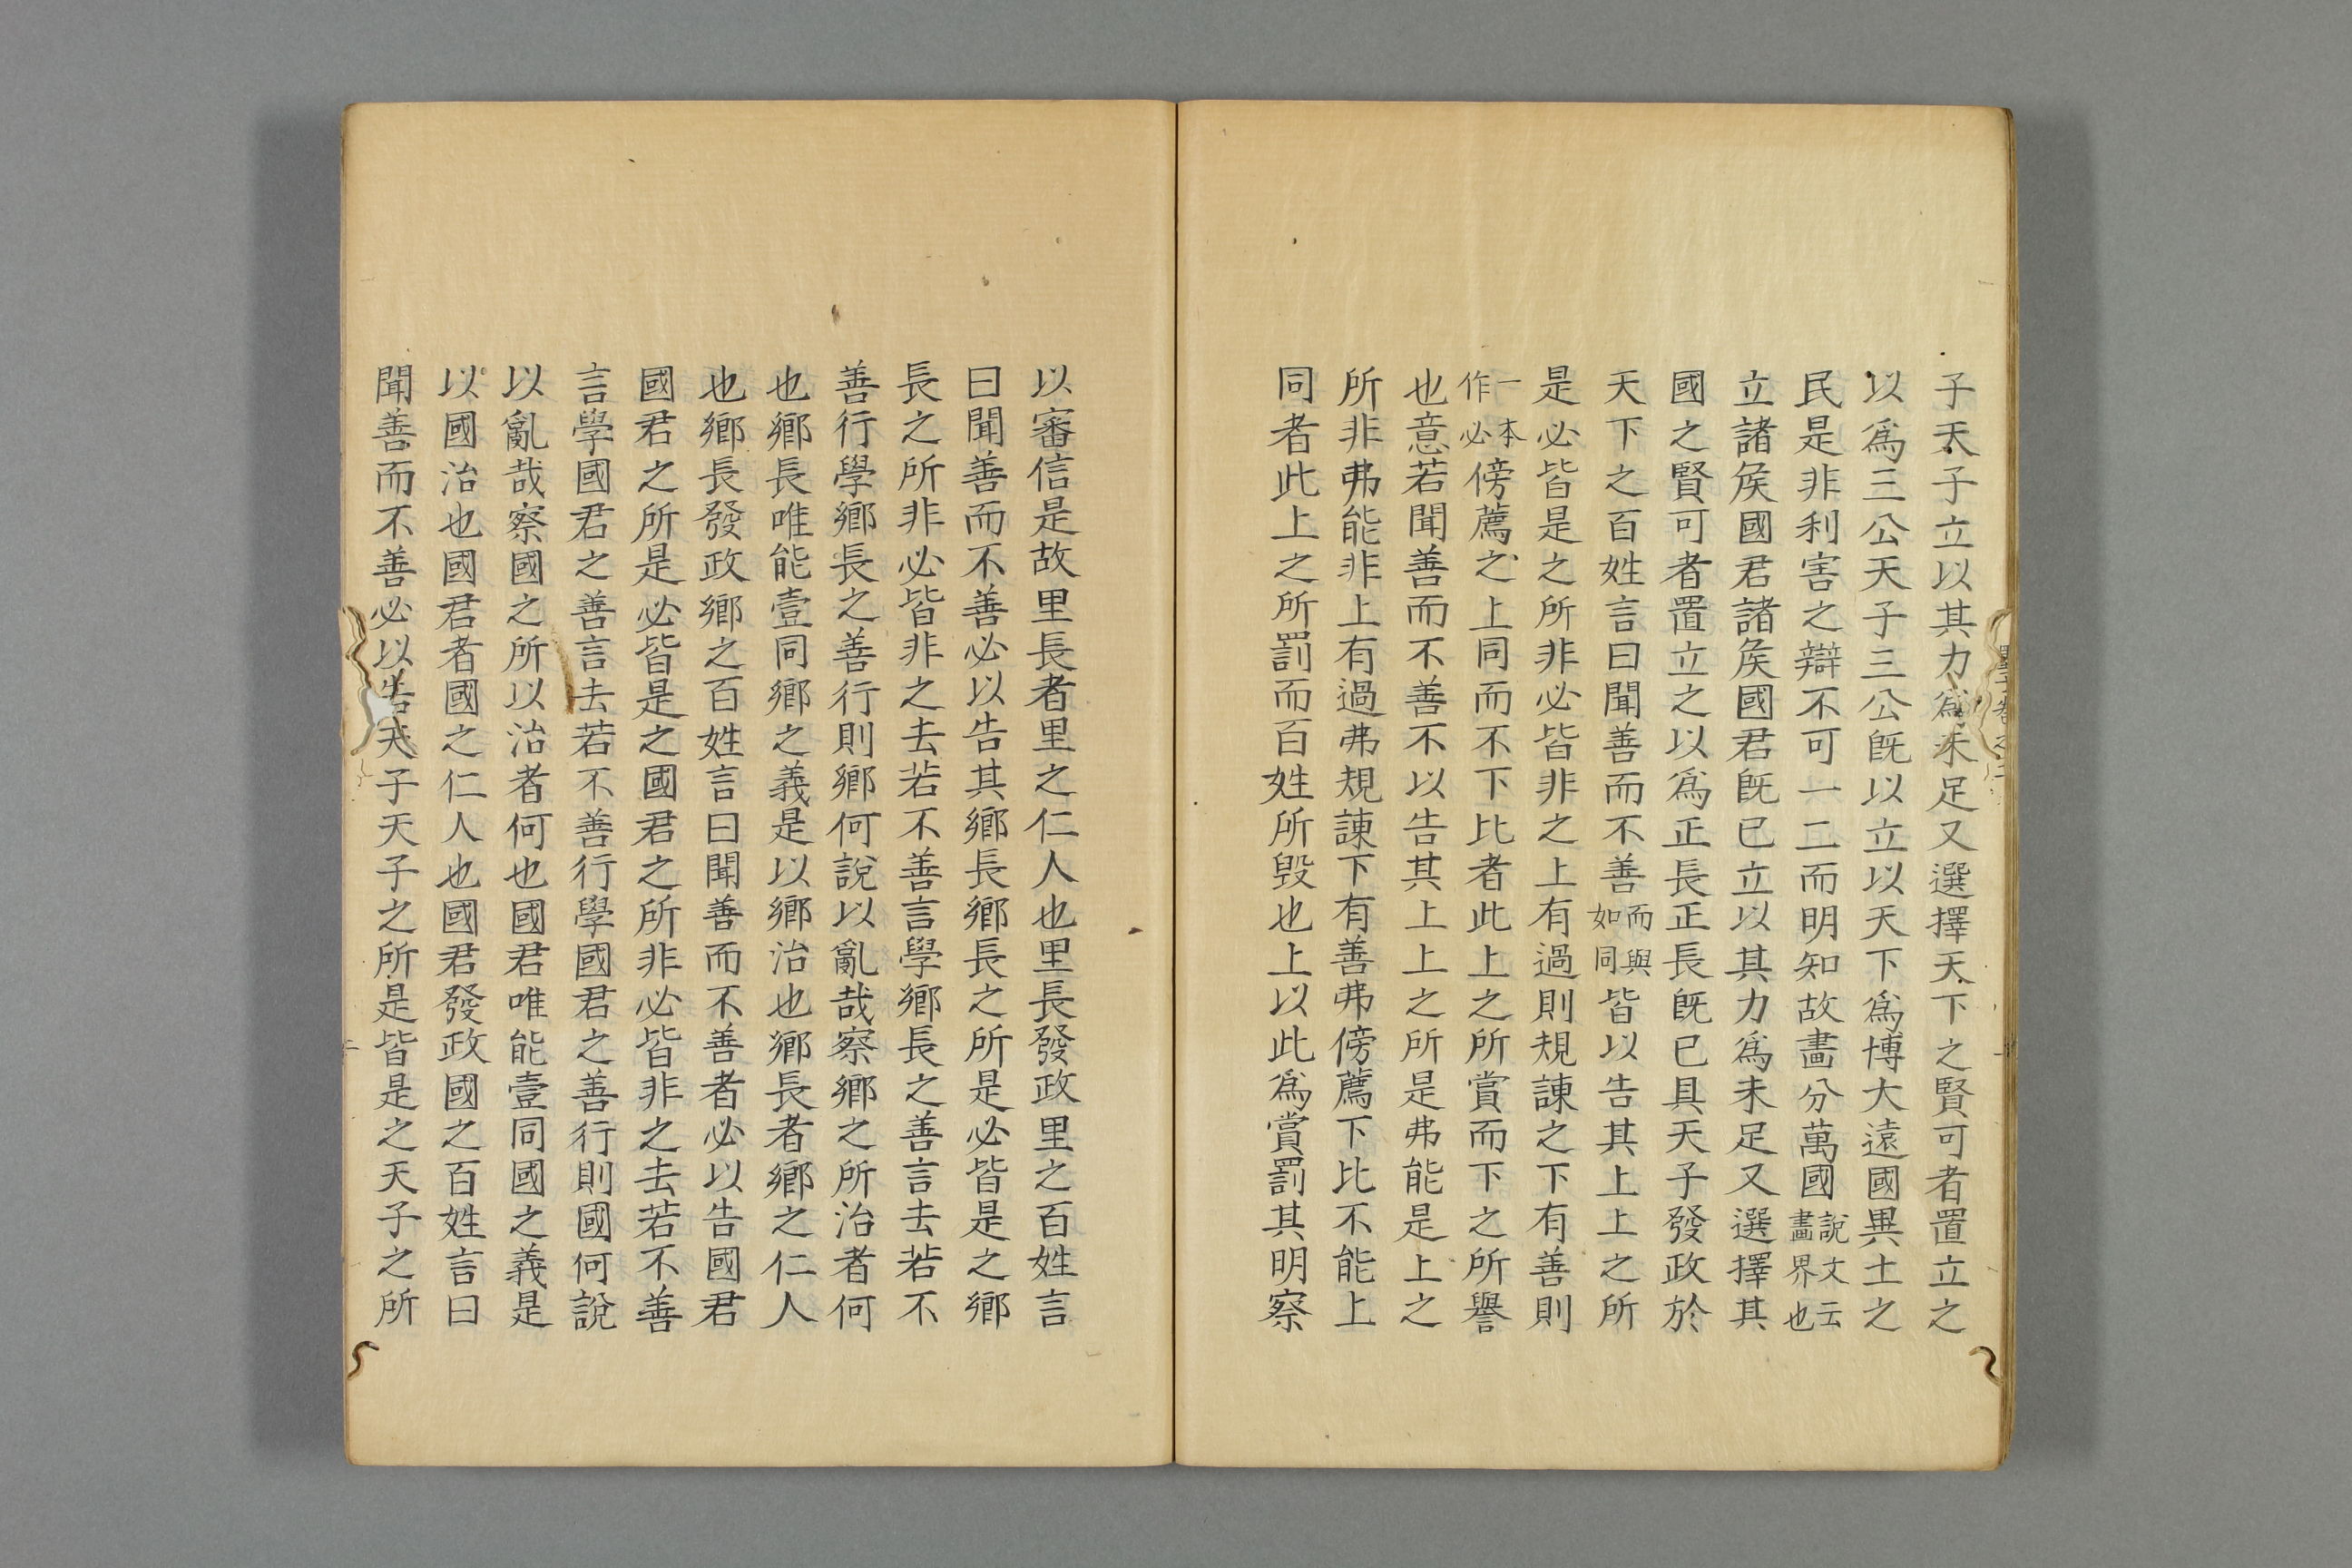 子天子立以其力爲未足又選擇天下之賢可者置立之
以爲三公天子三公旣以立以天下爲博大遠國異土之
民是非利害之辯不可一二而明知故畫分萬國說文云畫界也
立諸矦國君諸矦國君旣已立以其力爲未足又選擇其
國之賢可者置立之以爲正長正長旣已具天子發政於
天下之百姓言曰聞善而不善而與如同皆以告其上上之所
是必皆是之所非必皆非之上有過則規諫之下有善則
一本作必傍薦之上同而不下比者此上之所賞而下之所譽
也意若聞善而不善不以告其上上之所是弗能是上之
所非弗能非上有過弗規諫下有善弗傍薦下比不能上
同者此上之所罰而百姓所毁也上以此爲賞罰其明察
以審信是故里長者里之仁人也里長發政里之百姓言
曰聞善而不善必以告其鄉長鄉長之所是必皆是之鄉
長之所非必皆非之去若不善言學鄉長之善言去若不
善行學鄉長之善行則鄉何說以亂哉察鄉之所治者何
也鄉長唯能壹同鄉之義是以鄉治也鄉長者鄉之仁人
也鄉長發政鄉之百姓言曰聞善而不善者必以告國君
國君之所是必皆是之國君之所非必皆非之去若不善
言學國君之善言去若不善行學國君之善行則國何說
以亂哉察國之所以治者何也國君唯能壹同國之義是
以國治也國君者國之仁人也國君發政國之百姓言曰
聞善而不善必以告天子天子之所是皆是之天子之所